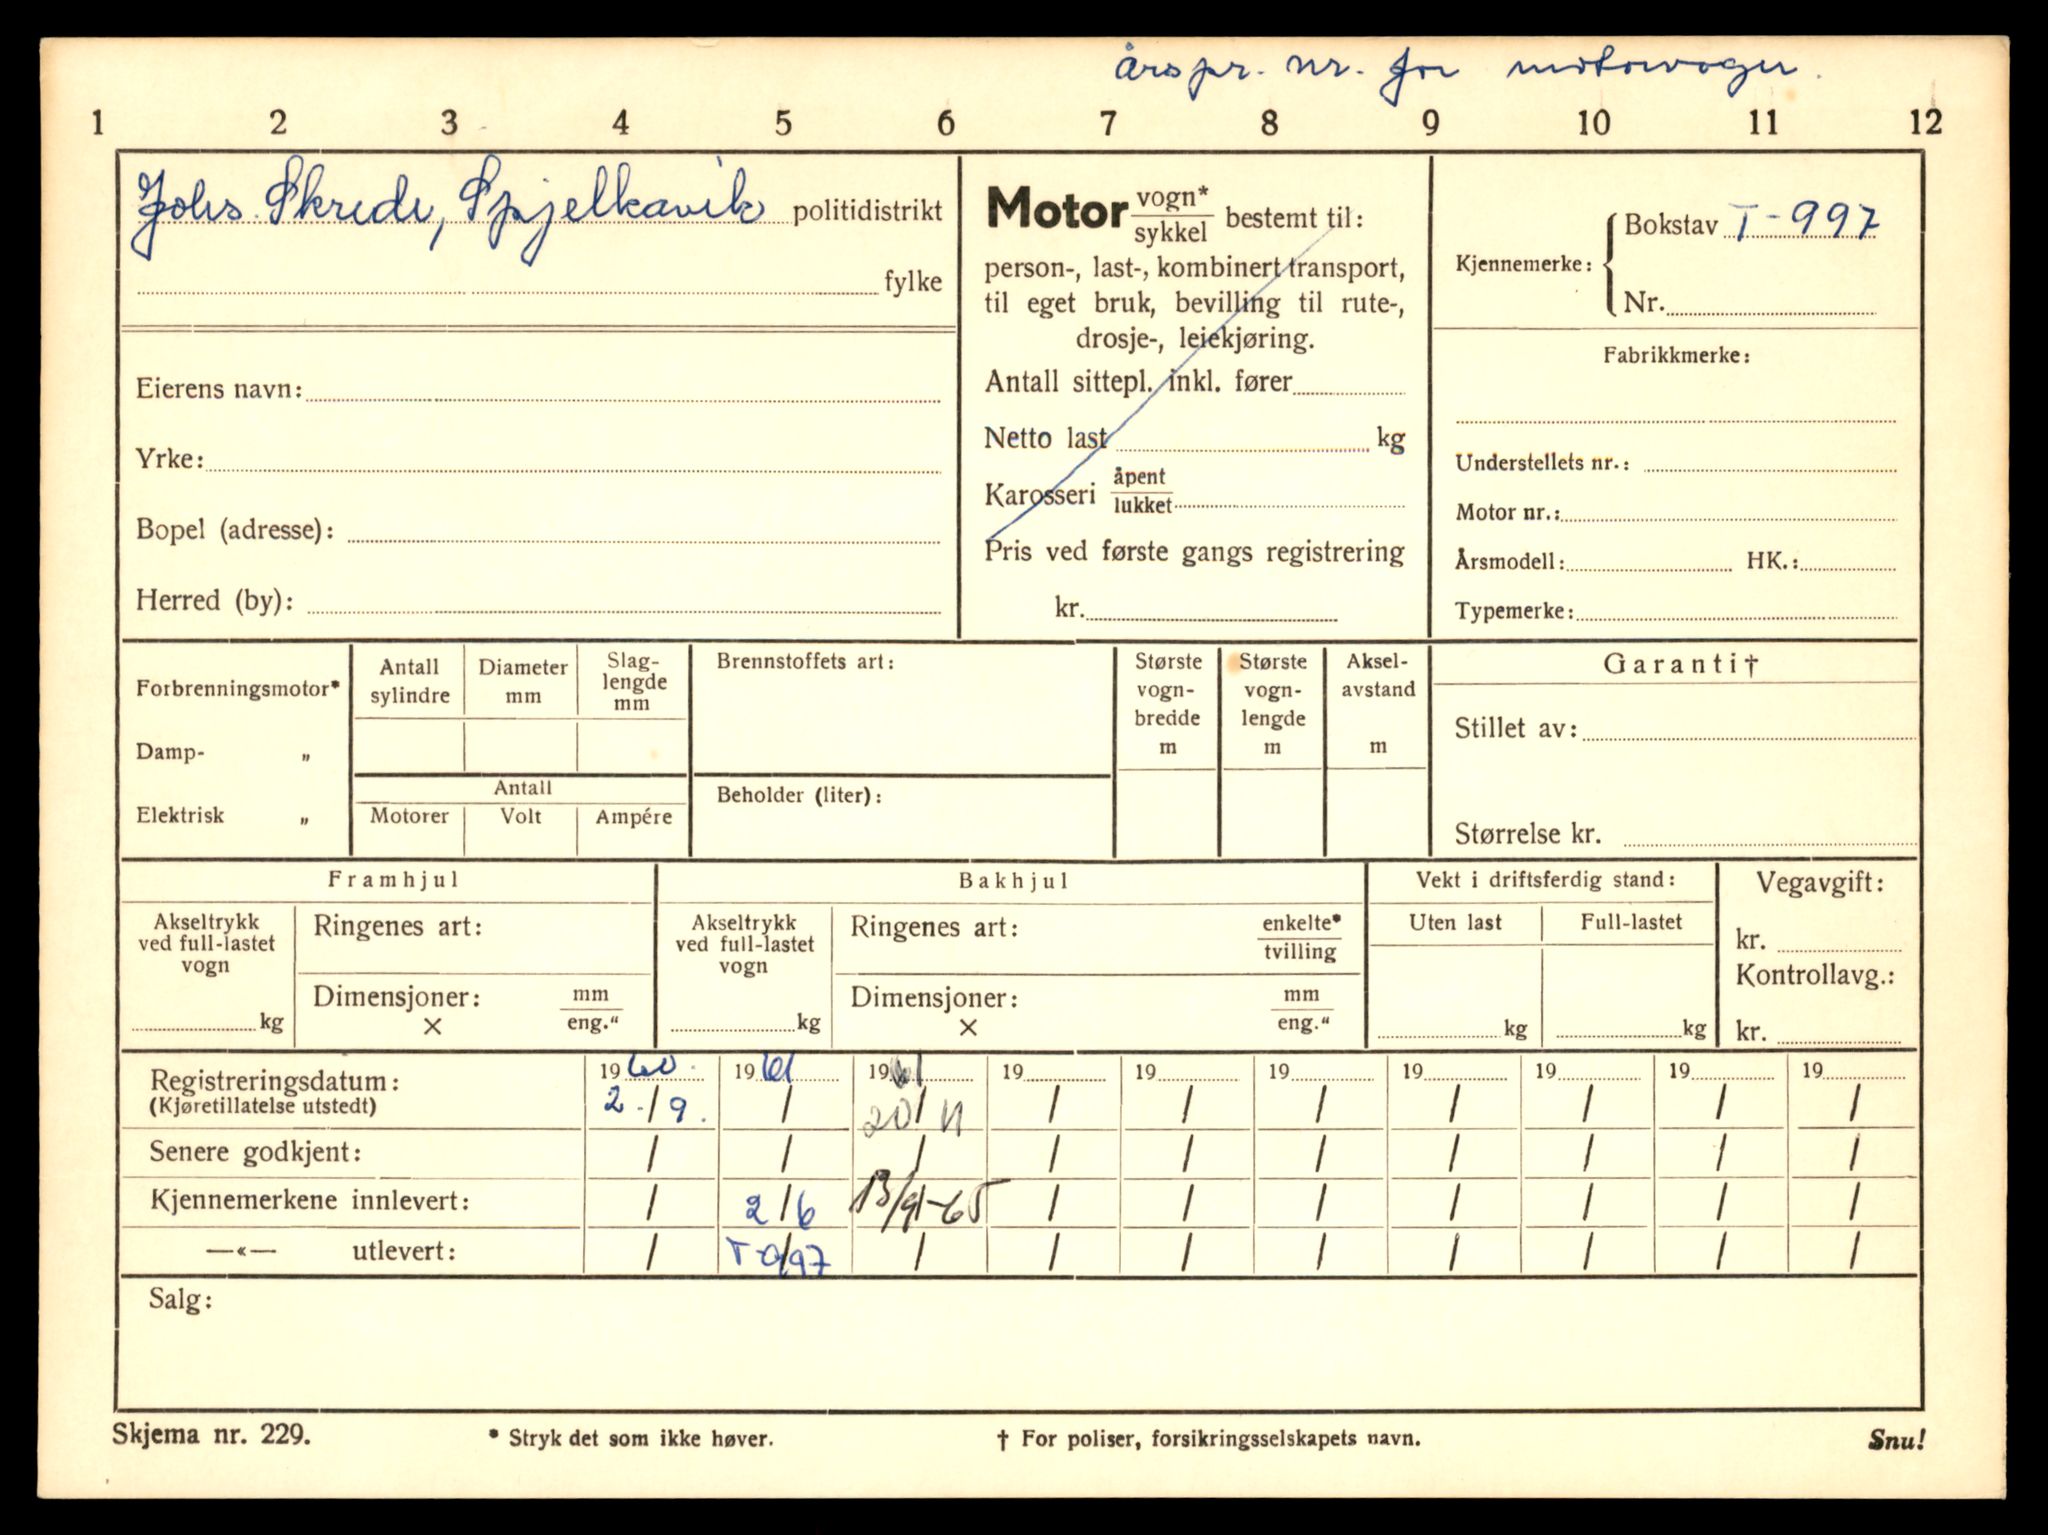 årspr. nr. for motorvogn.
1 2 3 4 5 6 7 8 9 10 11 12
Johs. Skrede, Spjelkavik politidistrikt
fylke
Eierens navn:
Yrke:
Bopel (adresse):
Herred (by):
Motor vogn* sykkel bestemt til:
person-, last-, kombinert transport,
til eget bruk, bevilling til rute-,
drosje-, leiekjøring.
Antall sittepl. inkl. fører
Netto last kg
Karosseri åpent lukket
Pris ved første gangs registrering
kr.
Kjennemerke: Bokstav T-997
Nr.
Fabrikkmerke:
Understellets nr.:
Motor nr.:
Årsmodell: HK.:
Typemerke:
Forbrenningsmotor*
Damp- „
Elektrisk „
Antall sylindre
Diameter mm
Slag-
lengde
mm
Antall
Motorer Volt Ampére
Brennstoffets art:
Beholder (liter):
Største
vogn-
bredde
m
Største
vogn-
lengde
m
Aksel-
avstand
m
Garanti†
Stillet av:
Størrelse kr.
Framhjul
Akseltrykk
ved full-lastet
vogn
kg
Ringenes art:
Dimensjoner: mm
× eng.“
Bakhjul
Akseltrykk
ved full-lastet
vogn
kg
Ringenes art: enkelte* tvilling
Dimensjoner: mm
× eng.“
Vekt i driftsferdig stand:
Uten last Full-lastet
kg kg
Vegavgift:
kr.
Kontrollavg.:
kr.
Registreringsdatum: 1960. 1961 1961 19 19 19 19 19 19 19
(Kjøretillatelse utstedt) 2./9. / 20/11 / / / / / / /
Senere godkjent: / / / / / / / / / /
Kjennemerkene innlevert: / 2/6 13/9-65 / / / / / / /
—«— utlevert: / T-997 / / / / / / / /
Salg:
Skjema nr. 229. * Stryk det som ikke høver. † For poliser, forsikringsselskapets navn. Snu!